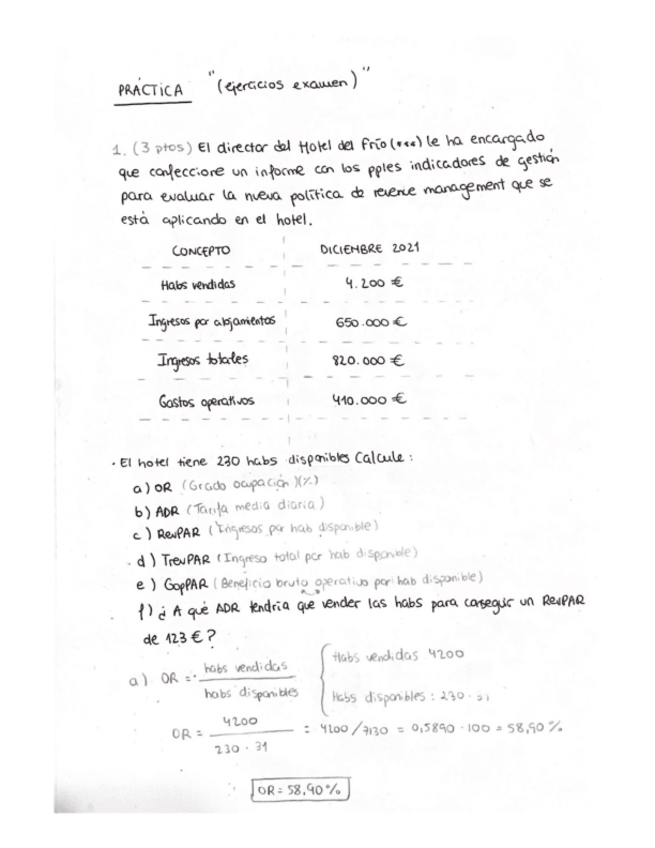 PRÁCTICA "(ejercicios examen)"
1. (3 ptos) El director del Hotel del Frío (***) le ha encargado
que confeccione un informe con los pples indicadores de gestión
para evaluar la nueva política de revenue management que se
está aplicando en el hotel.
CONCEPTO DICIEMBRE 2021
Habs vendidas 4.200 €
Ingresos por alojamientos 650.000 €
Ingresos totales 820.000 €
Gastos operativos 410.000 €
· El hotel tiene 230 habs disponibles Calcule:
a) OR (Grado ocupación)(%)
b) ADR (Tarifa media diaria)
c) RevPAR (Ingresos por hab disponible)
d) TrevPAR (Ingreso total por hab disponible)
e) GopPAR (Beneficio bruto operativo por hab disponible)
f) ¿A qué ADR tendría que vender las habs para conseguir un RevPAR
de 123 €?
a) OR = habs vendidas / habs disponibles
Habs vendidas 4200
Habs disponibles: 230 · 31
OR = 4200 / 230 · 31 = 4200/7130 = 0,5890 · 100 = 58,90 %
OR = 58,90 %